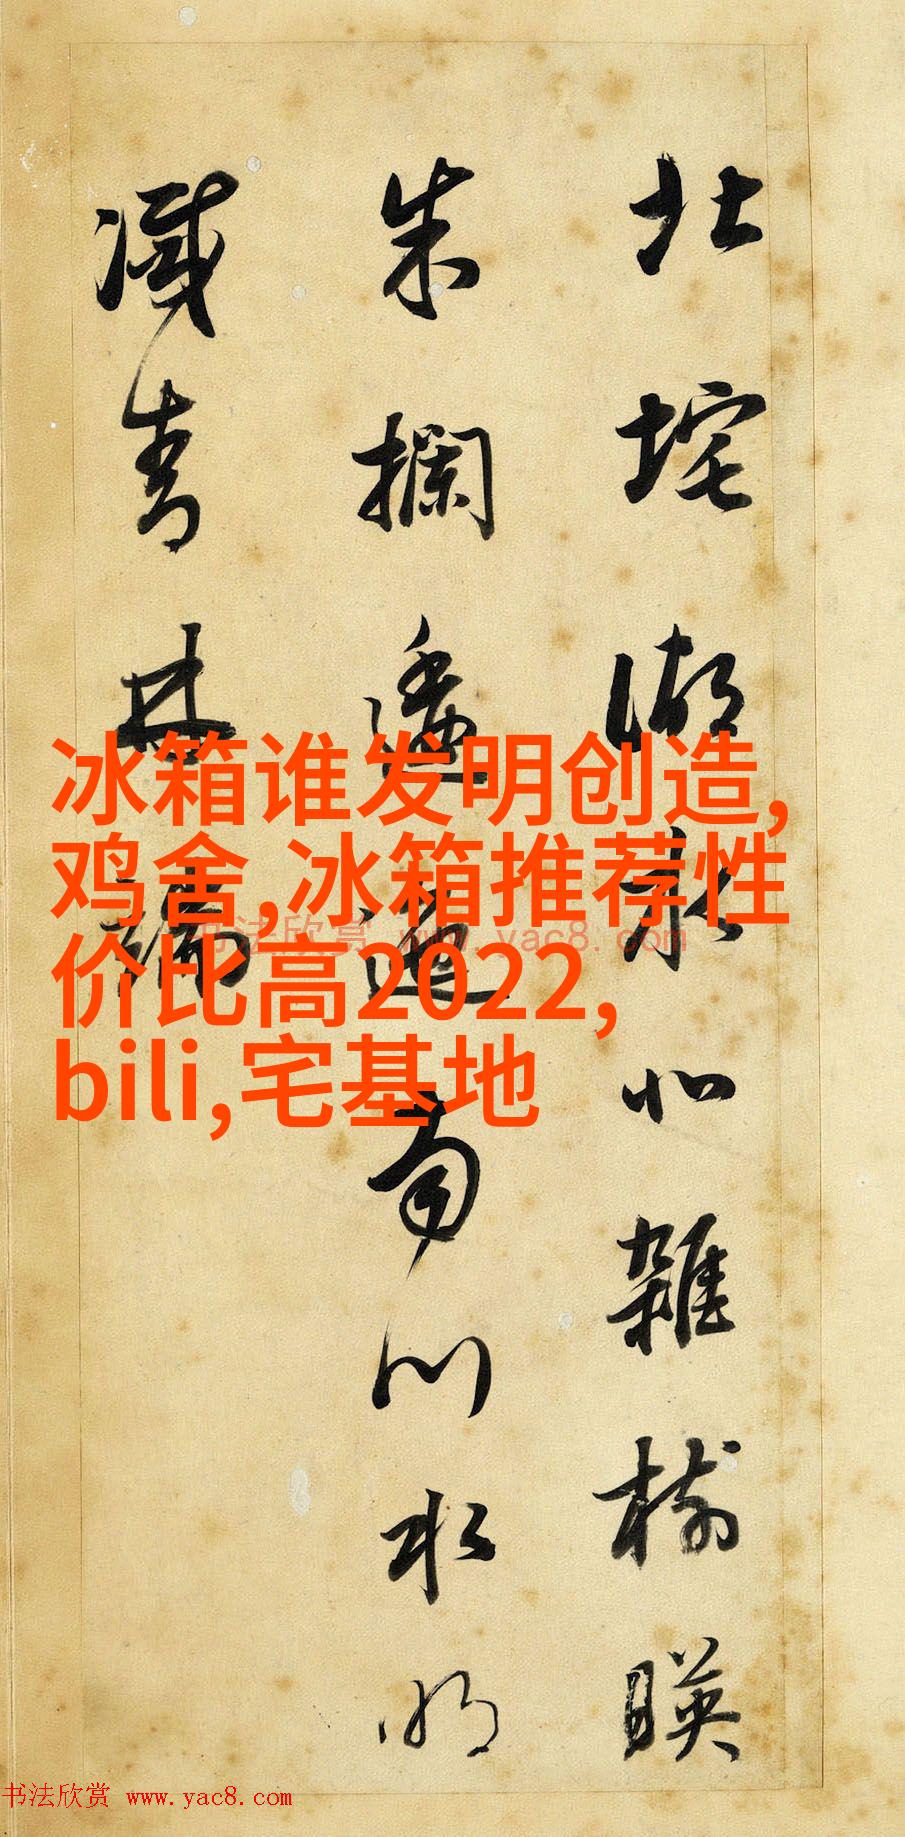 北垞湖水北雜樹暎
朱攔逶迤南川水明
滅青林端
冰箱谁发明创造,
鸡舍,冰箱推荐性
价比高2022,
bili,宅基地
书法欣赏 www.yac8.com
书法欣赏 www.yac8.com